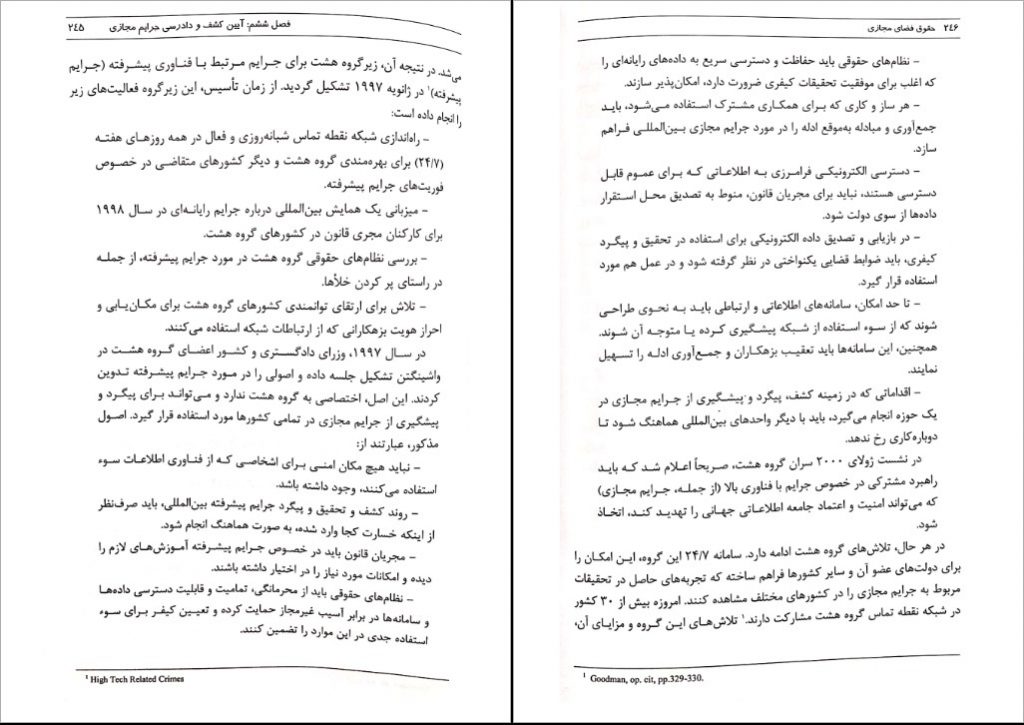 فصل ششم: آیین کشف و دادرسی جرایم مجازی ۲۴۵
می‌شد. در نتیجه آن، زیرگروه هشت برای جرایم مرتبط با فناوری پیشرفته (جرایم
پیشرفته)¹ در ژانویه ۱۹۹۷ تشکیل گردید. از زمان تأسیس، این زیرگروه فعالیت‌های زیر
را انجام داده است:
– راه‌اندازی شبکه نقطه تماس شبانه‌روزی و فعال در همه روزهای هفته
(۲۴/۷) برای بهره‌مندی گروه هشت و دیگر کشورهای متقاضی در خصوص
فوریت‌های جرایم پیشرفته.
– میزبانی یک همایش بین‌المللی درباره جرایم رایانه‌ای در سال ۱۹۹۸
برای کارکنان مجری قانون در کشورهای گروه هشت.
– بررسی نظام‌های حقوقی گروه هشت در مورد جرایم پیشرفته، از جمله
در راستای پر کردن خلأها.
– تلاش برای ارتقای توانمندی کشورهای گروه هشت برای مکان‌یابی و
احراز هویت بزهکارانی که از ارتباطات شبکه استفاده می‌کنند.
در سال ۱۹۹۷، وزرای دادگستری و کشور اعضای گروه هشت در
واشینگتن تشکیل جلسه داده و اصولی را در مورد جرایم پیشرفته تدوین
کردند. این اصل، اختصاصی به گروه هشت ندارد و می‌تواند برای پیگرد و
پیشگیری از جرایم مجازی در تمامی کشورها مورد استفاده قرار گیرد. اصول
مذکور، عبارتند از:
– نباید هیچ مکان امنی برای اشخاصی که از فناوری اطلاعات سوء
استفاده می‌کنند، وجود داشته باشد.
– روند کشف و تحقیق و پیگرد جرایم پیشرفته بین‌المللی، باید صرف‌نظر
از اینکه خسارت کجا وارد شده، به صورت هماهنگ انجام شود.
– مجریان قانون باید در خصوص جرایم پیشرفته آموزش‌های لازم را
دیده و امکانات مورد نیاز را در اختیار داشته باشند.
– نظام‌های حقوقی باید از محرمانگی، تمامیت و قابلیت دسترسی داده‌ها
و سامانه‌ها در برابر آسیب غیرمجاز حمایت کرده و تعیین کیفر برای سوء
استفاده جدی در این موارد را تضمین کنند.
¹ High Tech Related Crimes
۲۴۶ حقوق فضای مجازی
– نظام‌های حقوقی باید حفاظت و دسترسی سریع به داده‌های رایانه‌ای را
که اغلب برای موفقیت تحقیقات کیفری ضرورت دارد، امکان‌پذیر سازند.
– هر ساز و کاری که برای همکاری مشترک استفاده می‌شود، باید
جمع‌آوری و مبادله به‌موقع ادله را در مورد جرایم مجازی بین‌المللی فراهم
سازد.
– دسترسی الکترونیکی فرامرزی به اطلاعاتی که برای عموم قابل
دسترسی هستند، نباید برای مجریان قانون، منوط به تصدیق محل استقرار
داده‌ها از سوی دولت شود.
– در بازیابی و تصدیق داده الکترونیکی برای استفاده در تحقیق و پیگرد
کیفری، باید ضوابط قضایی یکنواختی در نظر گرفته شود و در عمل هم مورد
استفاده قرار گیرد.
– تا حد امکان، سامانه‌های اطلاعاتی و ارتباطی باید به نحوی طراحی
شوند که از سوء استفاده از شبکه پیشگیری کرده یا متوجه آن شوند.
همچنین، این سامانه‌ها باید تعقیب بزهکاران و جمع‌آوری ادله را تسهیل
نمایند.
– اقداماتی که در زمینه کشف، پیگرد و پیشگیری از جرایم مجازی در
یک حوزه انجام می‌گیرد، باید با دیگر واحدهای بین‌المللی هماهنگ شود تا
دوباره‌کاری رخ ندهد.
در نشست ژولای ۲۰۰۰ سران گروه هشت، صریحاً اعلام شد که باید
راهبرد مشترکی در خصوص جرایم با فناوری بالا (از جمله، جرایم مجازی)
که می‌تواند امنیت و اعتماد جامعه اطلاعاتی جهانی را تهدید کند، اتخاذ
شود.
در هر حال، تلاش‌های گروه هشت ادامه دارد. سامانه ۲۴/۷ این گروه، این امکان را
برای دولت‌های عضو آن و سایر کشورها فراهم ساخته که تجربه‌های حاصل در تحقیقات
مربوط به جرایم مجازی را در کشورهای مختلف مشاهده کنند. امروزه بیش از ۳۰ کشور
در شبکه نقطه تماس گروه هشت مشارکت دارند.¹ تلاش‌های این گروه و مزایای آن،
¹ Goodman, op. cit, pp.329-330.